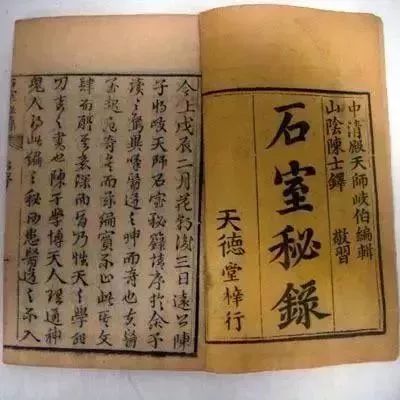 中清殿天師岐伯編輯
山陰陳士鐸 敬習
石室秘錄
天德堂梓行
今上戊辰二月花朝後三日遠公陳
子以天師石室秘錄序於余予
讀之異嘆醫道之神而奇也
奇而實不止此其文
肆而其意深而旨乃性天之學
刀圭之書也陳子學博天人理通神
鬼人以此編之秘而患醫道之不入